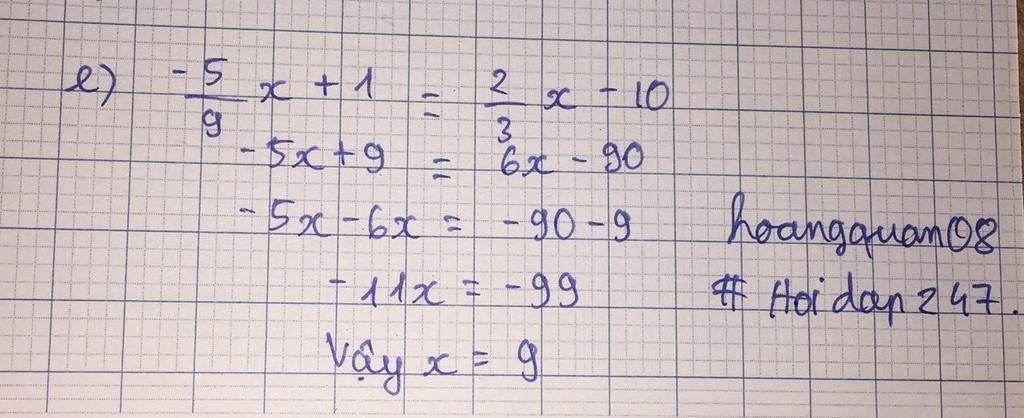 e) -5/9 x + 1 = 2/3 x - 10
-5x + 9 = 6x - 90
-5x - 6x = -90 - 9
hoangquan08
-11x = -99
# Hoidap247.
Vậy x = 9